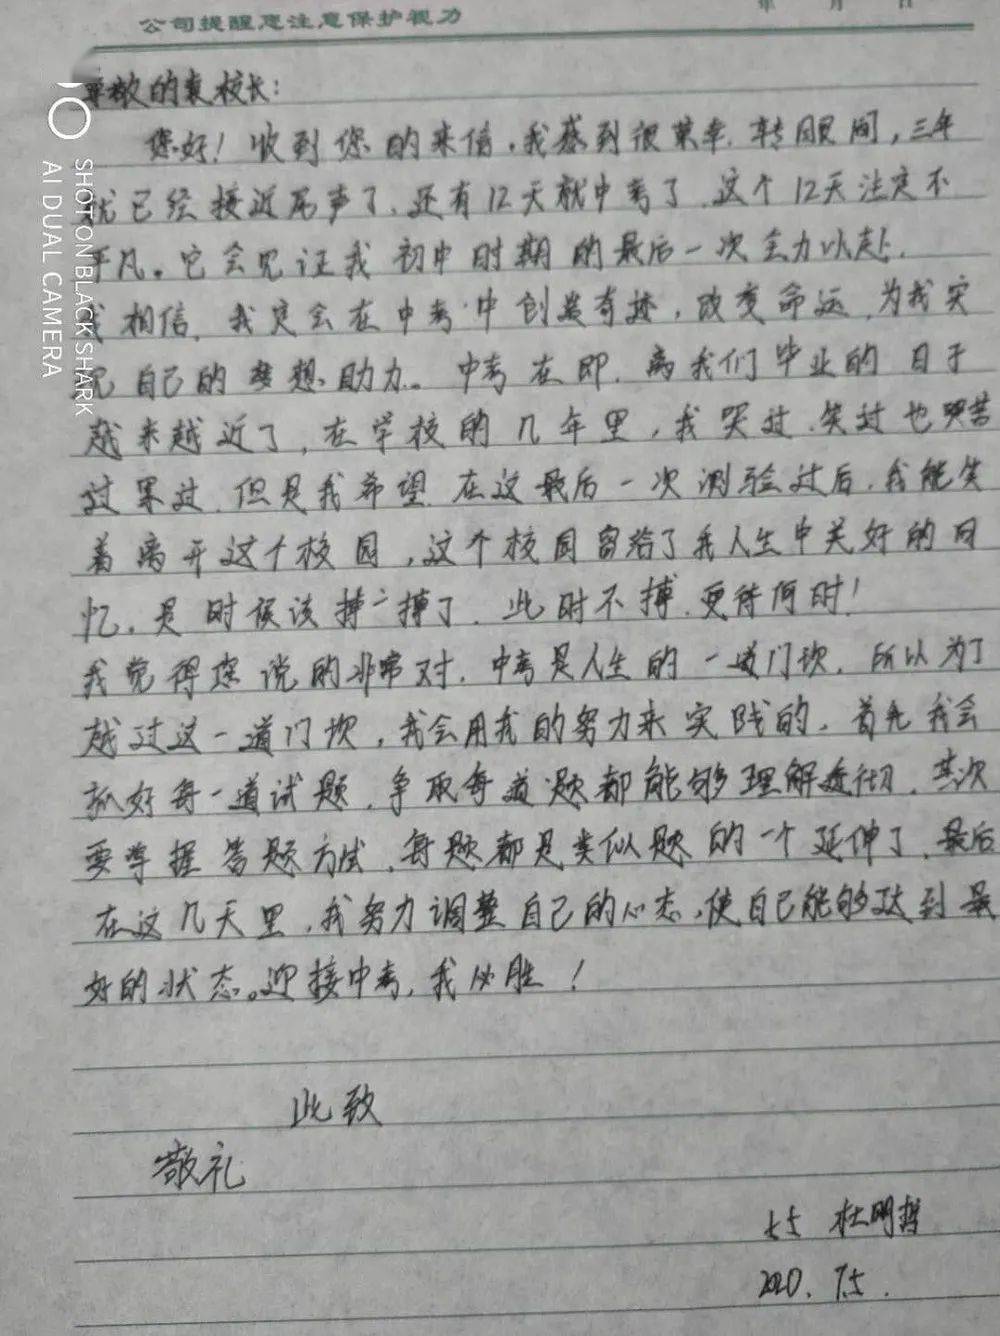 公司提醒您注意保护视力
年 月 日
尊敬的袁校长：
您好！收到您的来信，我感到很荣幸，转眼间，三年
就已经接近尾声了，还有12天就中考了，这个12天注定不
平凡。它会见证我初中时期的最后一次全力以赴，
我相信，我定会在中考中创造奇迹，改变命运，为我实
现自己的梦想助力。中考在即，离我们毕业的日子
越来越近了，在学校的几年里，我哭过，笑过也
过累过，但是我希望，在这最后一次测验过后，我能笑
着离开这个校园，这个校园留给了我人生中美好的回
忆，是时候该搏一搏了，此时不搏，更待何时！
我觉得您说的非常对，中考是人生的一道门坎，所以为了
越过这一道门坎，我会用我的努力来实践的，首先我会
抓好每一道试题，争取每道题都能够理解透彻，其次
要掌握答题方式，每题都是类似题的一个延伸了，最后
在这几天里，我努力调整自己的心态，使自己能够达到最
好的状态。迎接中考，我必胜！
此致
敬礼
杜明哲
2020.7.5.
SHOT ON BLACK SHARK
AI DUAL CAMERA